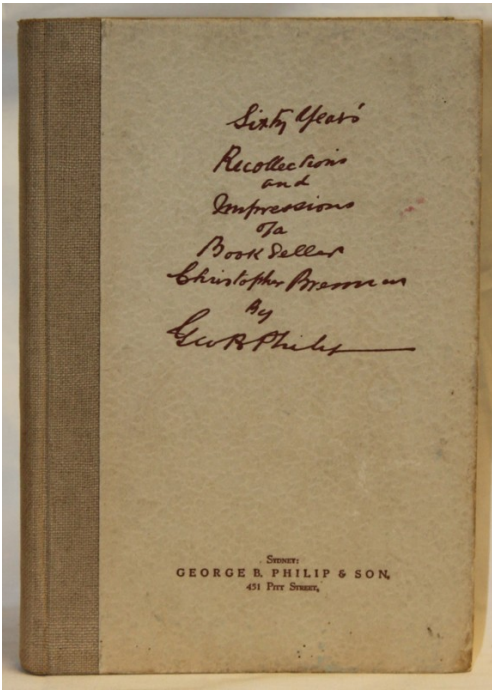 Sixty Years'
Recollections
and
Impressions
of a
Book Seller
Christopher Brennan
By
Geo B Philip
SYDNEY:
GEORGE B. PHILIP & SON,
451 PITT STREET,